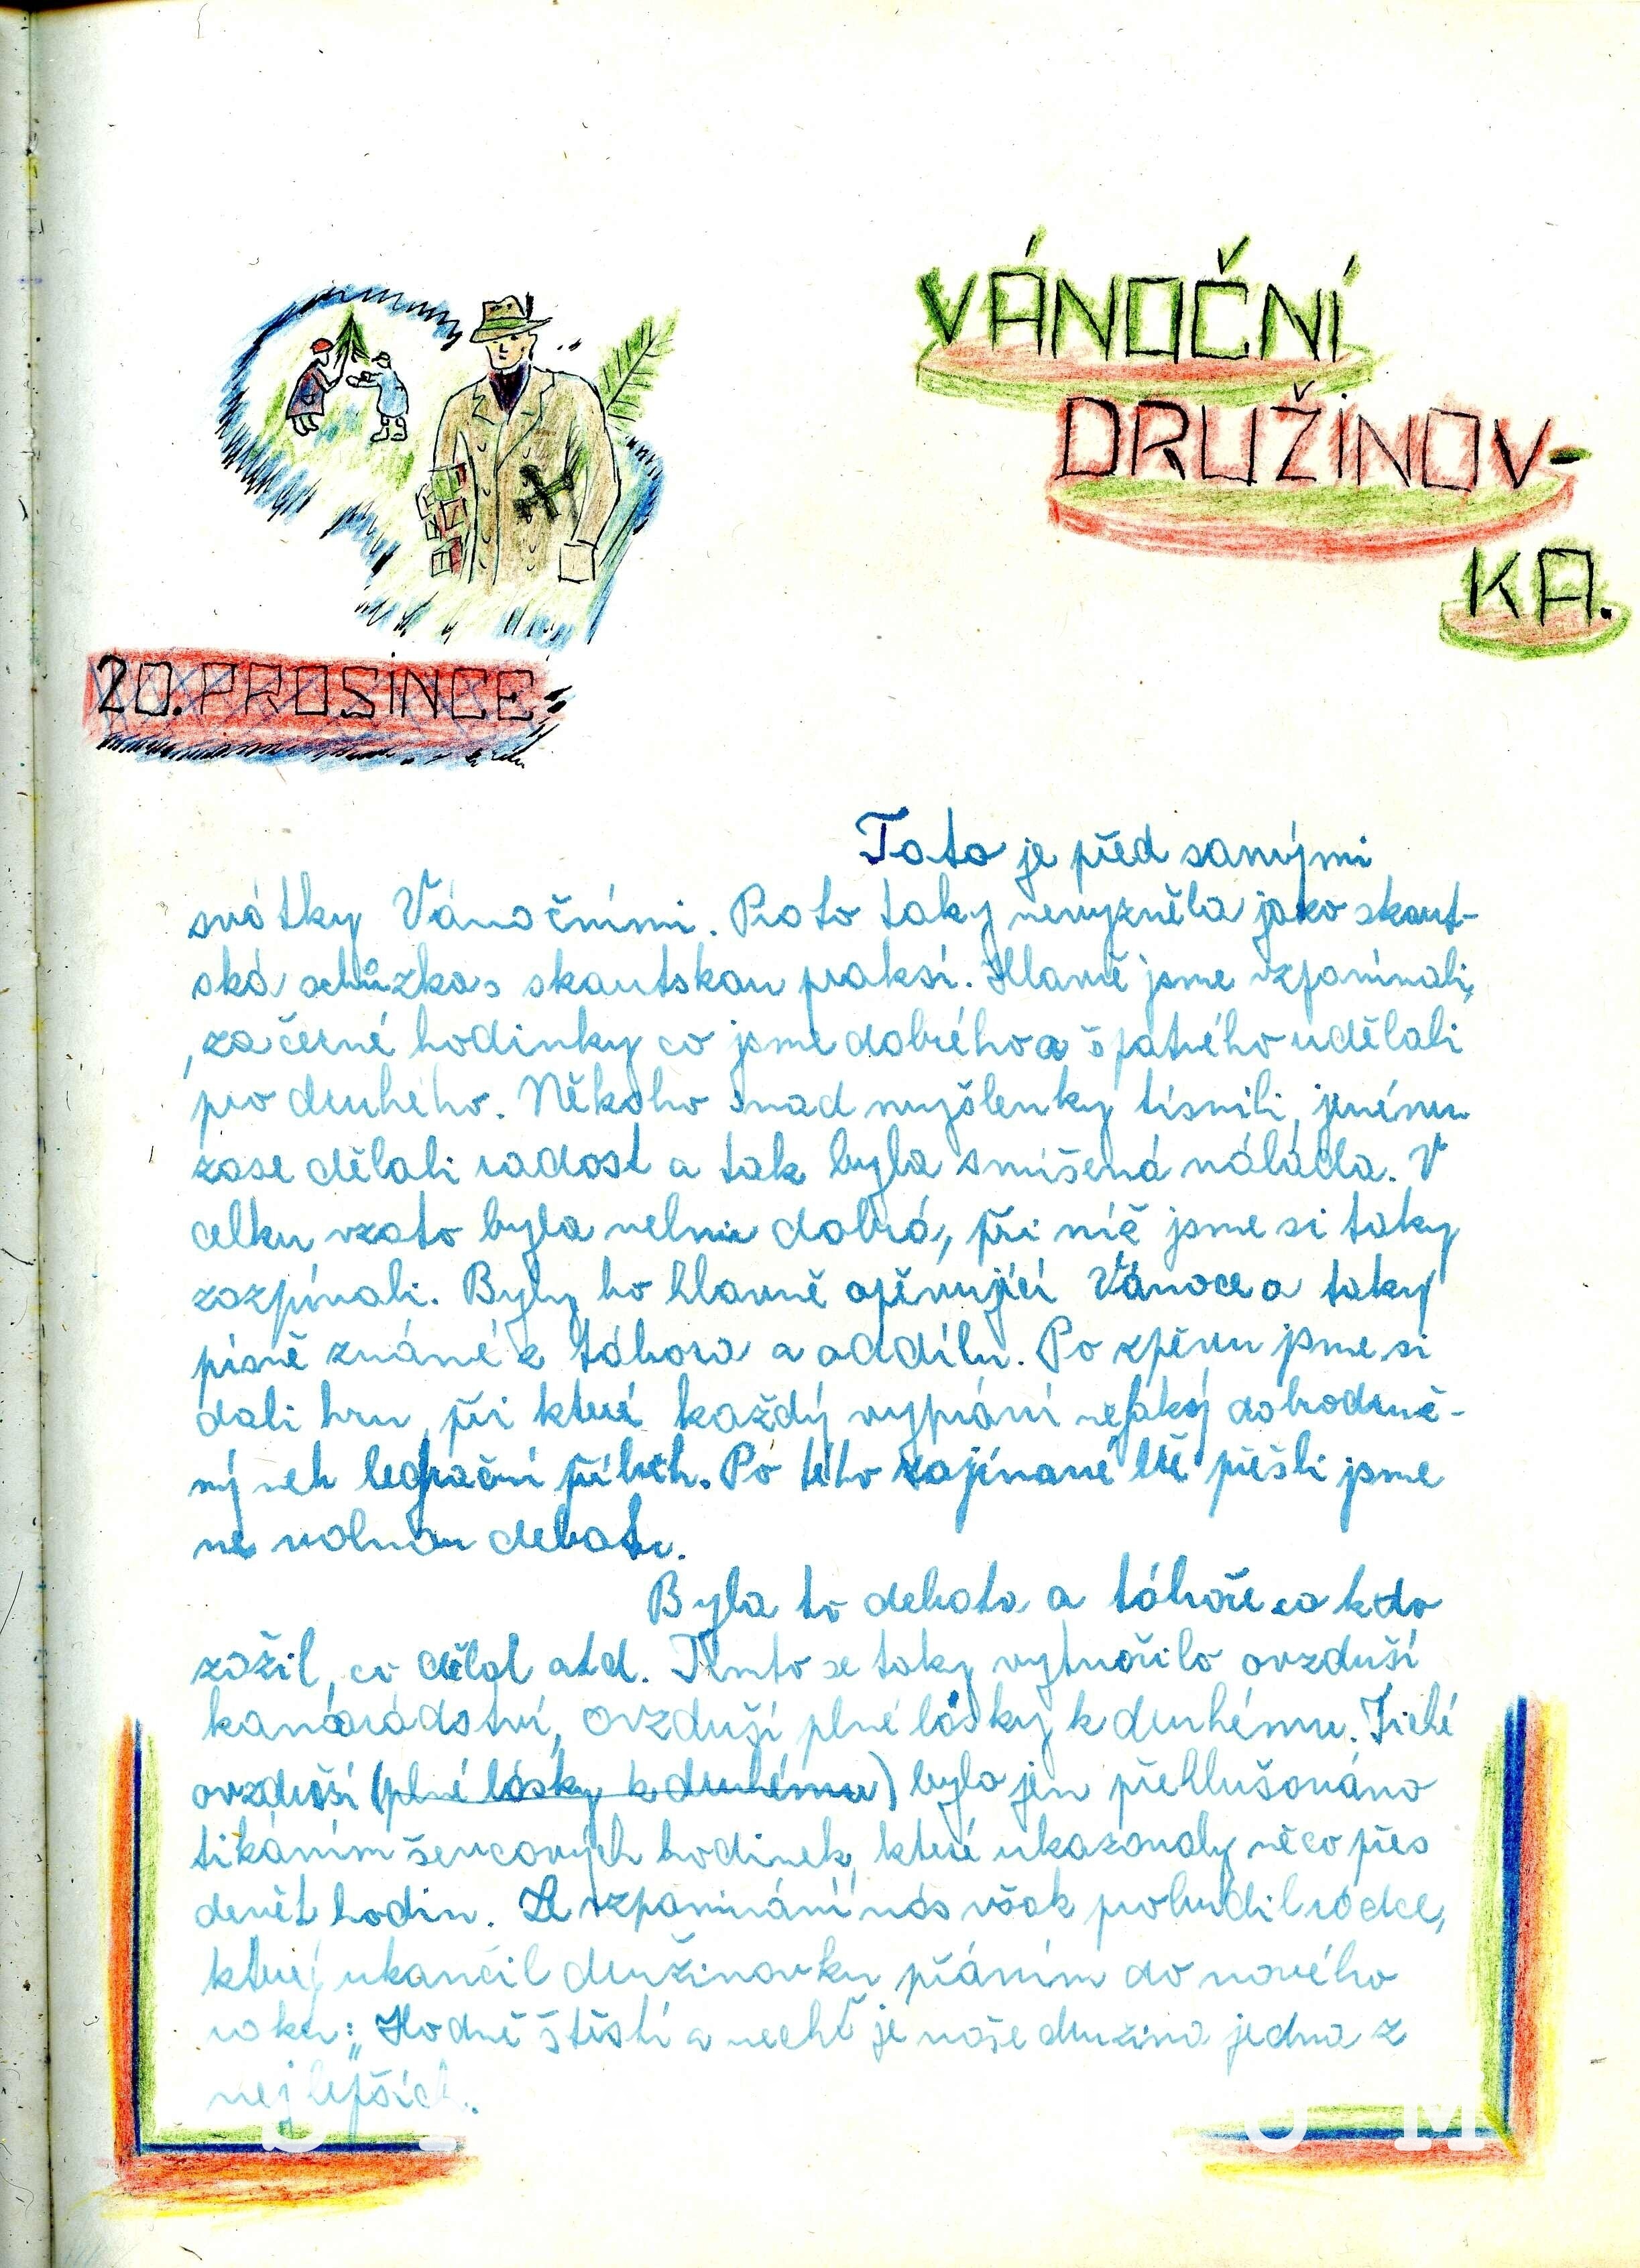 VÁNOČNÍ
DRUŽINOV-
KA.
20. PROSINCE
Tato je před samými
svátky Vánočními. Proto taky nevyzněla jako skaut-
ská schůzka s skautskou praksí. Hlavně jsme vzpomínali,
za černé hodinky co jsme dobrého a špatného udělali
pro druhého. Někoho snad myšlenky tísnili, jinému
zase dělali radost a tak byla smíšená nálada. V
celku vzato byla velmi dobrá, při níž jsme si taky
zazpívali. Byly to hlavně opěvující Vánoce a taky
písně známé z tábora a oddílu. Po zpěvu jsme si
dali hru, při které každý vypráví nejaký dobrodruž-
ný neb legrační příběh. Po této zajímavé hře přešli jsme
na volnou debatu.
Byla to debata o táboře co kdo
zažil, co dělal atd. Tímto se taky vytvořilo ovzduší
kamarádství, ovzduší plné lásky k druhému. Tiché
ovzduší (plné lásky k druhému) bylo jen přehlušováno
tikáním ševcových hodinek, které ukazovaly něco přes
devět hodin. Ze vzpomínání nás však probudil rádce,
který ukončil družinovku přáním do nového
roku: „Hodně štěstí a nechť je naše družina jedna z
nejlepších.